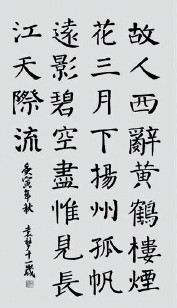 故人西辭黃鶴樓煙
花三月下揚州孤帆
遠影碧空盡惟見長
江天際流
庚寅年秋 十一歲